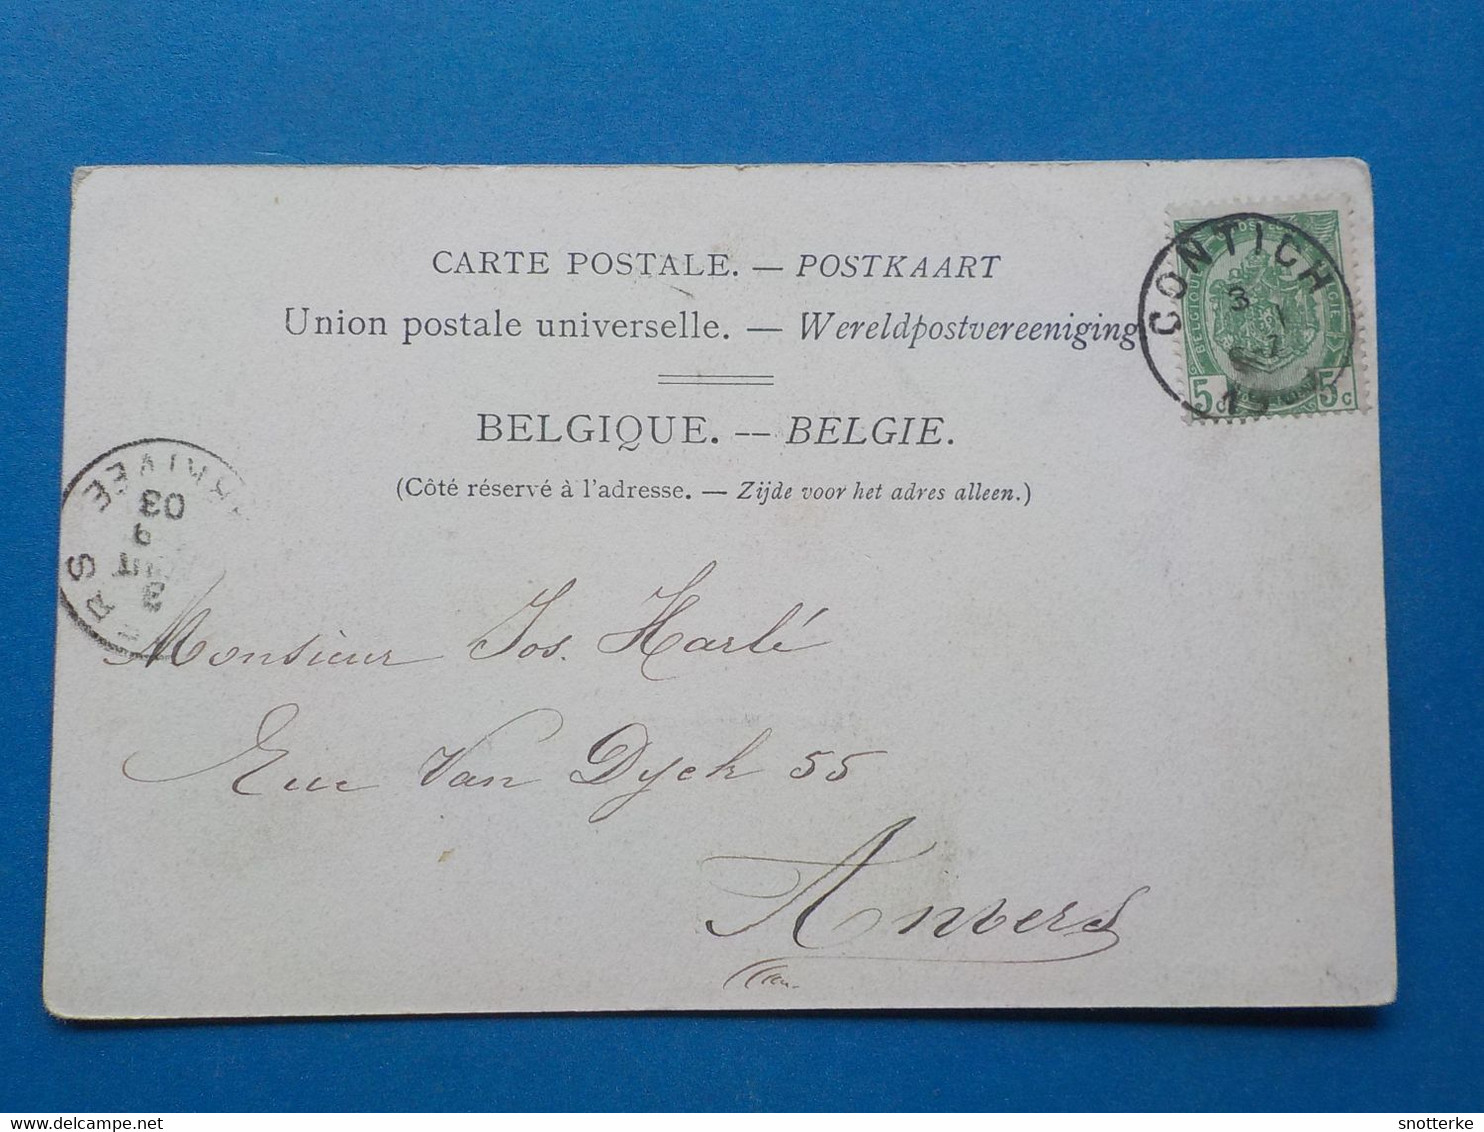 CARTE POSTALE. — POSTKAART
Union postale universelle. — Wereldpostvereeniging
BELGIQUE. -- BELGIE.
(Côté réservé à l'adresse. — Zijde voor het adres alleen.)
CONTICH
3
BELGIQUE
5 C
5 C
03
9
3
Monsieur Jos. Harlé
Rue Van Dyck 55
Anvers
snotterke